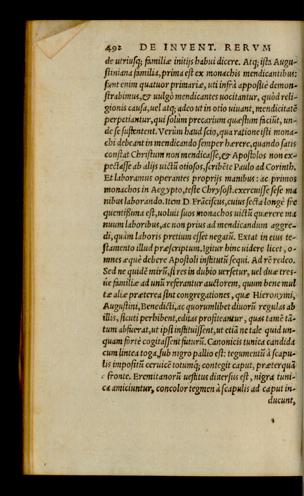 492 DE INVENT. RERVM
de utriusq; familiæ initijs habui dicere. Atq; ista Augu-
stiniana familia, prima est ex monachis mendicantibus:
sunt enim quatuor primariæ, uti infrà appositè demon-
strabimus, & uulgò mendicantes uocitantur, quòd reli-
gionis causa, uel atq; adeo ut in otio uiuant, mendicitatē
perpetiantur, qui solùm precarium quæstum faciūt, un-
de se sustentent. Verùm haud scio, qua ratione isti mona-
chi debeant in mendicando semper hærere, quando satis
constat Christum non mendicasse, & Apostolos non ex-
pectasse ab alijs uictū otiosos, scribēte Paulo ad Corinth.
Et laboramus operantes proprijs manibus: ac primos
monachos in Aegypto, teste Chrysost. exercuisse sese ma
nibus laborando. Item D. Frāciscus, cuius secta longè fre
quentissima est, uoluit suos monachos uictū quærere ma
nuum laboribus, ac non prius ad mendicandum aggre-
di, quàm laboris pretium esset negatū. Extat in eius te-
stamento illud præscriptum. Igitur hinc uidere licet, o-
mnes æquè debere Apostoli institutū sequi. Ad rē redeo.
Sed ne quidē mirū, si res in dubio uersetur, uel duæ tres-
úe familiæ ad unū referantur auctorem, quum bene mul
tæ aliæ præterea sint congregationes, quæ Hieronymi,
Augustini, Benedicti, ac quorumlibet diuorū regulas ab
illis, sicuti perhibent, editas profiteantur, quas tamē tā-
tum abfuerat, ut ipsi instituissent, ut etiā ne tale quid un-
quam fortè cogitassent futurū. Canonicis tunica candida
cum lintea toga, sub nigro pallio est: tegumentū à scapu-
lis impositū ceruicē totumq; contegit caput, præterquā
à fronte. Eremitanorū uestitus diuersus est, nigra tuni-
ca amiciuntur, concolor tegmen à scapulis ad caput in-
ducunt,